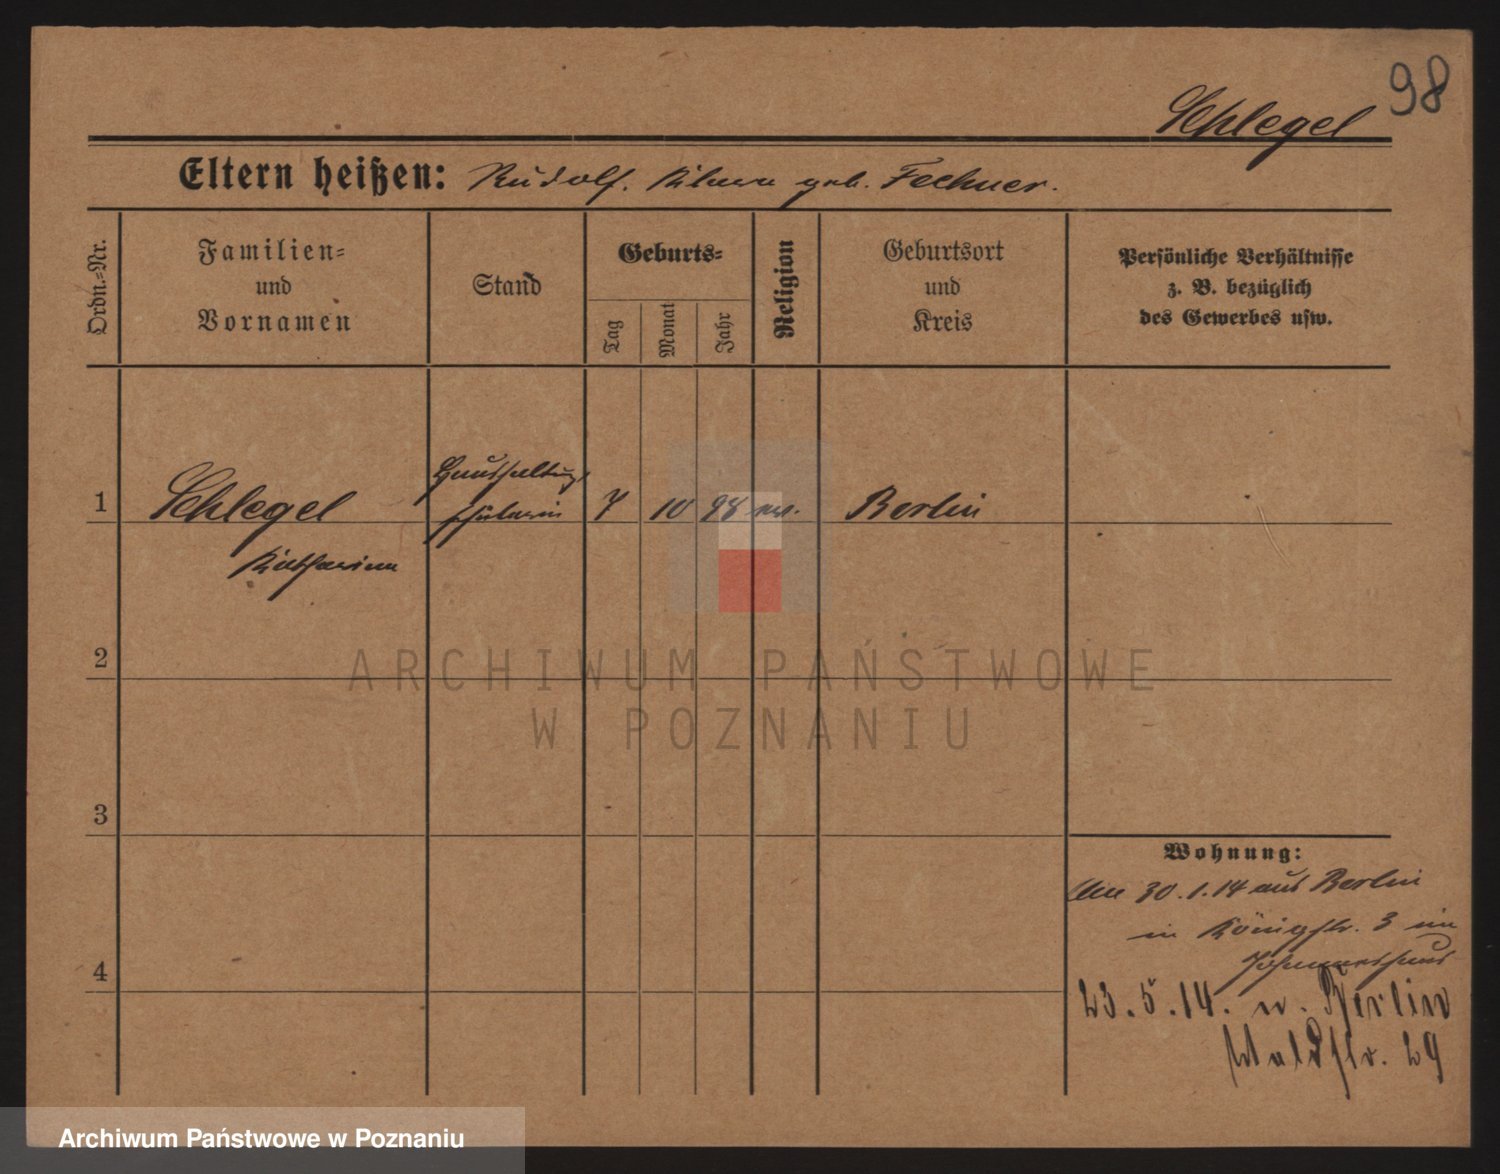 98
Schlegel
Eltern heißen: Rudolf. Klara geb. Fechner.
Ordn.=Nr.
Familien=
und
Vornamen
Stand
Geburts=
Tag
Monat
Jahr
Religion
Geburtsort
und
Kreis
Persönliche Verhältnisse
z. B. bezüglich
des Gewerbes usw.
1
Schlegel
Katharina
Haushaltungs
schülerin
7
10
98
ev.
Berlin
2
3
4
Wohnung:
Am 30.1.14 aus Berlin
in Königstr. 3 im
Johanneshaus
23.5.14. n. Berlin
Waldstr. 29
ARCHIWUM PAŃSTWOWE
W POZNANIU
Archiwum Państwowe w Poznaniu